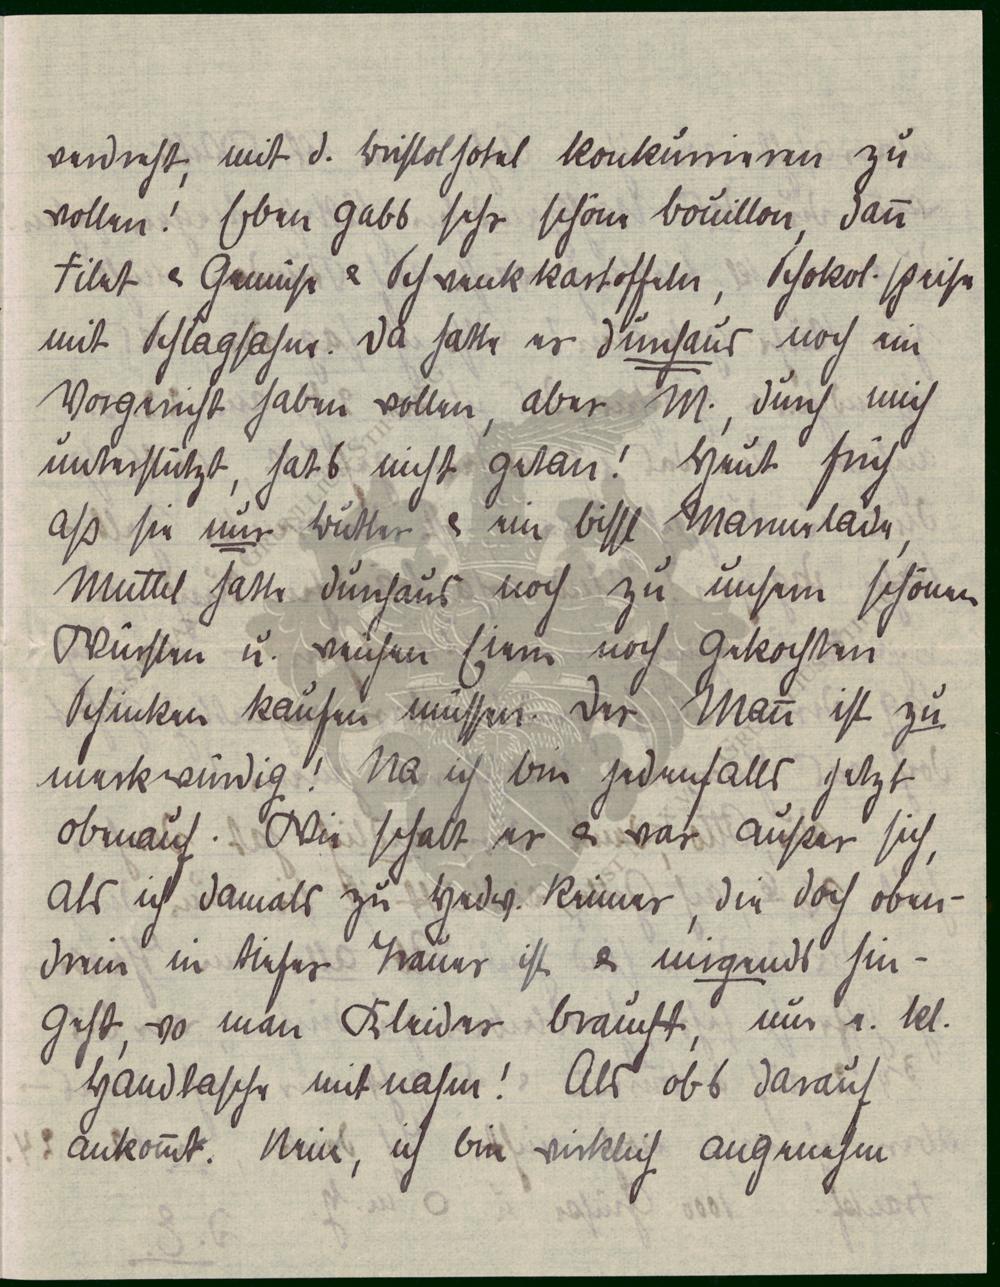 verdreht, mit d. Bristolhotel konkurrieren zu
wollen! Eben gabs sehr schöne Bouillon, dan̄
Filet & Gemüse & Schwenkkartoffeln, Schokol. speise
mit Schlagsahne. Da hatte er durchaus noch ein
Vorgericht haben wollen, aber M., durch mich
unterstützt, hat's nicht getan! Heut früh
aß sie nur Butter & ein bissl Marmelade,
Muttel hatte durchaus noch zu unsern schönen
Würsten u. weichen Eiern noch gekochten
Schinken kaufen müssen. Der Man̄ ist zu
merkwürdig! Na ich bin jedenfalls jetzt
obenauf. Wie schalt er & war außer sich,
als ich damals zu Hedw. Reimer, die doch oben-
drein in tiefer Trauer ist & nirgends hin-
geht, wo man Kleider braucht, nur e. kl.
Handtasche mitnahm! Als ob's darauf
ankom̄t. Nein, ich bin wirklich angenehm